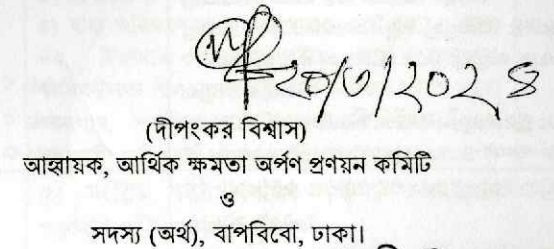 ২০/৩/২০২৪
(দীপংকর বিশ্বাস)
আহ্বায়ক, আর্থিক ক্ষমতা অর্পণ প্রণয়ন কমিটি
ও
সদস্য (অর্থ), বাপবিবো, ঢাকা।